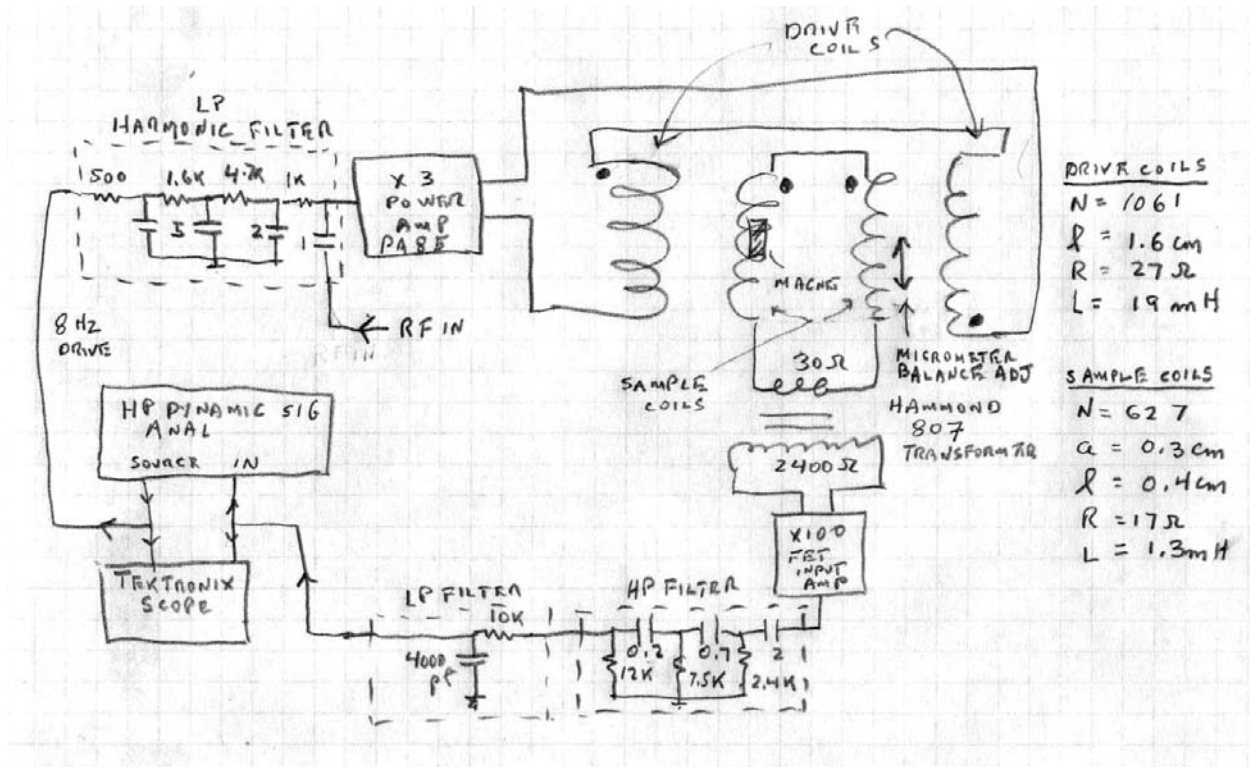 DRIVE
COILS
LP
HARMONIC FILTER
500
1.6K
4.7K
1K
5
2
1
X 3
POWER
AMP
PA85
RF IN
8 HZ
DRIVE
MAGNET
30Ω
SAMPLE
COILS
MICROMETER
BALANCE ADJ
HAMMOND
807
TRANSFORMER
2400Ω
X100
FET
INPUT
AMP
HP DYNAMIC SIG
ANAL
SOURCE IN
TEKTRONIX
SCOPE
LP FILTER
10K
4000
pf
HP FILTER
0.7
2
12K
7.5K
2.4K
DRIVE COILS
N = 1061
l = 1.6 cm
R = 27 Ω
L = 19 mH
SAMPLE COILS
N = 627
a = 0.3 cm
l = 0.4 cm
R = 17 Ω
L = 1.3 mH